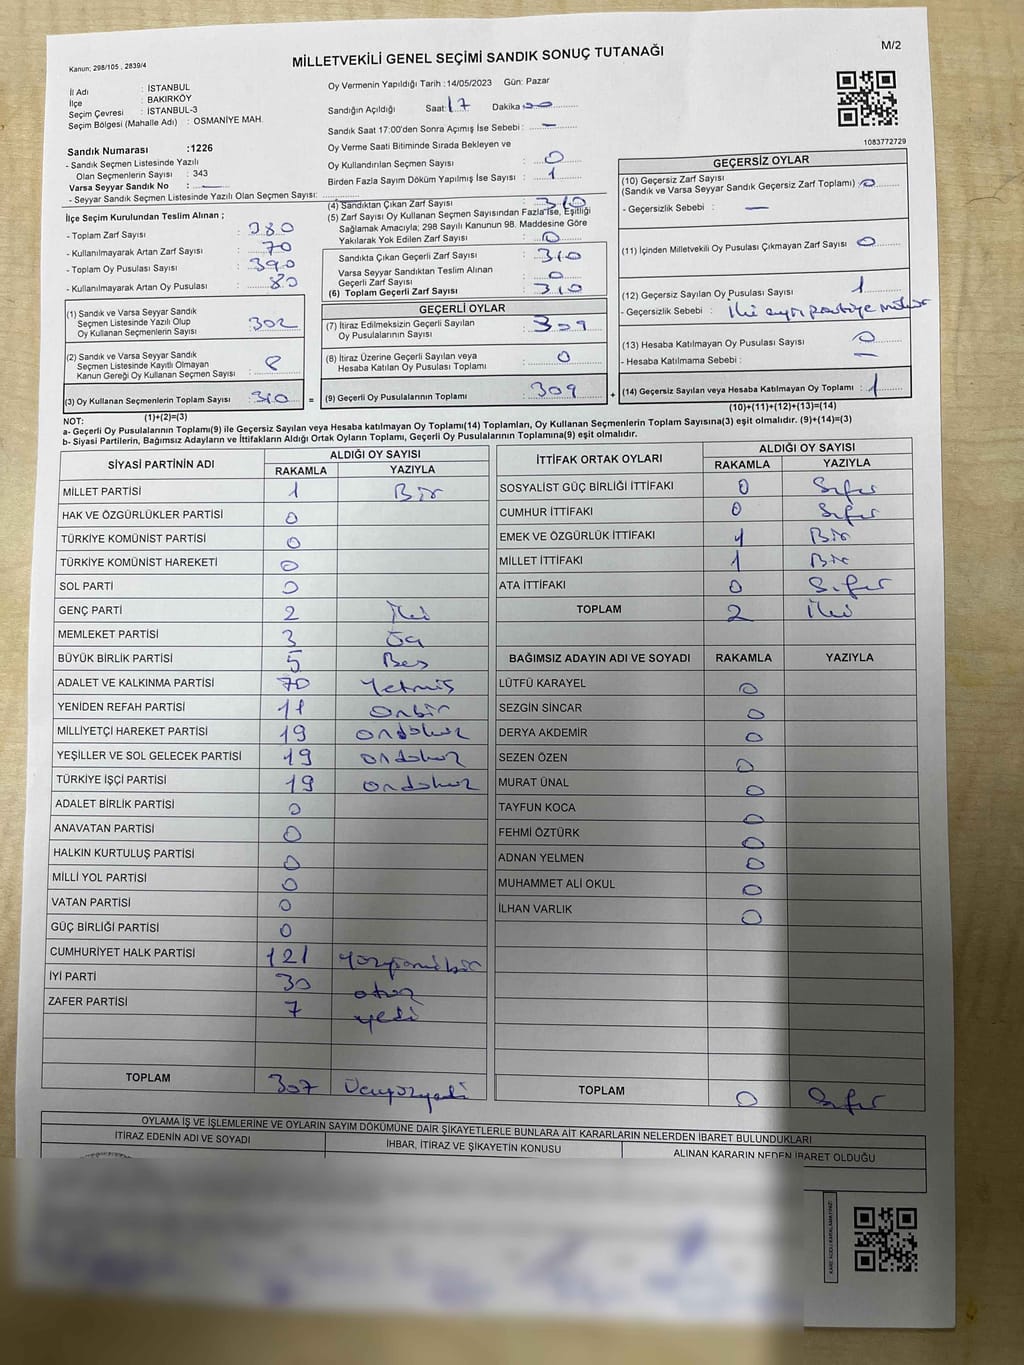 Kanun; 298/105 , 2839/4
MİLLETVEKİLİ GENEL SEÇİMİ SANDIK SONUÇ TUTANAĞI
M/2
İl Adı : İSTANBUL
İlçe : BAKIRKÖY
Seçim Çevresi : İSTANBUL-3
Seçim Bölgesi (Mahalle Adı) : OSMANİYE MAH.
Sandık Numarası :1226
- Sandık Seçmen Listesinde Yazılı
Olan Seçmenlerin Sayısı : 343
Varsa Seyyar Sandık No : —
- Seyyar Sandık Seçmen Listesinde Yazılı Olan Seçmen Sayısı:
Oy Vermenin Yapıldığı Tarih : 14/05/2023 Gün: Pazar
Sandığın Açıldığı Saat: 17 Dakika 00
Sandık Saat 17:00'den Sonra Açımış İse Sebebi : —
Oy Verme Saati Bitiminde Sırada Bekleyen ve
Oy Kullandırılan Seçmen Sayısı : 0
Birden Fazla Sayım Döküm Yapılmış İse Sayısı : 1
1083772729
İlçe Seçim Kurulundan Teslim Alınan ;
- Toplam Zarf Sayısı : 380
- Kullanılmayarak Artan Zarf Sayısı : 70
- Toplam Oy Pusulası Sayısı : 390
- Kullanılmayarak Artan Oy Pusulası : 80
(1) Sandık ve Varsa Seyyar Sandık
Seçmen Listesinde Yazılı Olup
Oy Kullanan Seçmenlerin Sayısı : 302
(2) Sandık ve Varsa Seyyar Sandık
Seçmen Listesinde Kayıtlı Olmayan
Kanun Gereği Oy Kullanan Seçmen Sayısı : 8
(3) Oy Kullanan Seçmenlerin Toplam Sayısı : 310
(1)+(2)=(3)
(4) Sandıktan Çıkan Zarf Sayısı : 310
(5) Zarf Sayısı Oy Kullanan Seçmen Sayısından Fazla İse, Eşitliği
Sağlamak Amacıyla; 298 Sayılı Kanunun 98. Maddesine Göre
Yakılarak Yok Edilen Zarf Sayısı : 0
Sandıkta Çıkan Geçerli Zarf Sayısı : 310
Varsa Seyyar Sandıktan Teslim Alınan
Geçerli Zarf Sayısı : 0
(6) Toplam Geçerli Zarf Sayısı : 310
GEÇERLİ OYLAR
(7) İtiraz Edilmeksizin Geçerli Sayılan
Oy Pusulalarının Sayısı : 309
(8) İtiraz Üzerine Geçerli Sayılan veya
Hesaba Katılan Oy Pusulası Toplamı : 0
= (9) Geçerli Oy Pusulalarının Toplamı : 309 +
GEÇERSİZ OYLAR
(10) Geçersiz Zarf Sayısı
(Sandık ve Varsa Seyyar Sandık Geçersiz Zarf Toplamı) : 0
- Geçersizlik Sebebi : —
(11) İçinden Milletvekili Oy Pusulası Çıkmayan Zarf Sayısı : 0
(12) Geçersiz Sayılan Oy Pusulası Sayısı : 1
- Geçersizlik Sebebi : İki ayrı partiye mühür
(13) Hesaba Katılmayan Oy Pusulası Sayısı : 0
- Hesaba Katılmama Sebebi : —
(14) Geçersiz Sayılan veya Hesaba Katılmayan Oy Toplamı : 1
(10)+(11)+(12)+(13)=(14)
NOT:
a- Geçerli Oy Pusulalarının Toplamı(9) ile Geçersiz Sayılan veya Hesaba katılmayan Oy Toplamı(14) Toplamları, Oy Kullanan Seçmenlerin Toplam Sayısına(3) eşit olmalıdır. (9)+(14)=(3)
b- Siyasi Partilerin, Bağımsız Adayların ve İttifakların Aldığı Ortak Oyların Toplamı, Geçerli Oy Pusulalarının Toplamına(9) eşit olmalıdır.
SİYASİ PARTİNİN ADI ALDIĞI OY SAYISI
RAKAMLA YAZIYLA
MİLLET PARTİSİ 1 Bir
HAK VE ÖZGÜRLÜKLER PARTİSİ 0
TÜRKİYE KOMÜNİST PARTİSİ 0
TÜRKİYE KOMÜNİST HAREKETİ 0
SOL PARTİ 0
GENÇ PARTİ 2 İki
MEMLEKET PARTİSİ 3 Üç
BÜYÜK BİRLİK PARTİSİ 5 Beş
ADALET VE KALKINMA PARTİSİ 70 Yetmiş
YENİDEN REFAH PARTİSİ 11 Onbir
MİLLİYETÇİ HAREKET PARTİSİ 19 ondokuz
YEŞİLLER VE SOL GELECEK PARTİSİ 19 ondokuz
TÜRKİYE İŞÇİ PARTİSİ 19 ondokuz
ADALET BİRLİK PARTİSİ 0
ANAVATAN PARTİSİ 0
HALKIN KURTULUŞ PARTİSİ 0
MİLLİ YOL PARTİSİ 0
VATAN PARTİSİ 0
GÜÇ BİRLİĞİ PARTİSİ 0
CUMHURİYET HALK PARTİSİ 121 yüzyirmibir
İYİ PARTİ 30 otuz
ZAFER PARTİSİ 7 yedi
TOPLAM 307 Üçyüzyedi
İTTİFAK ORTAK OYLARI ALDIĞI OY SAYISI
RAKAMLA YAZIYLA
SOSYALİST GÜÇ BİRLİĞİ İTTİFAKI 0 Sıfır
CUMHUR İTTİFAKI 0 Sıfır
EMEK VE ÖZGÜRLÜK İTTİFAKI 1 Bir
MİLLET İTTİFAKI 1 Bir
ATA İTTİFAKI 0 Sıfır
TOPLAM 2 İki
BAĞIMSIZ ADAYIN ADI VE SOYADI RAKAMLA YAZIYLA
LÜTFÜ KARAYEL 0
SEZGİN SİNCAR 0
DERYA AKDEMİR 0
SEZEN ÖZEN 0
MURAT ÜNAL 0
TAYFUN KOCA 0
FEHMİ ÖZTÜRK 0
ADNAN YELMEN 0
MUHAMMET ALİ OKUL 0
İLHAN VARLIK 0
TOPLAM 0 Sıfır
OYLAMA İŞ VE İŞLEMLERİNE VE OYLARIN SAYIM DÖKÜMÜNE DAİR ŞİKAYETLERLE BUNLARA AİT KARARLARIN NELERDEN İBARET BULUNDUKLARI
İTİRAZ EDENİN ADI VE SOYADI İHBAR, İTİRAZ VE ŞİKAYETİN KONUSU ALINAN KARARIN NEDEN İBARET OLDUĞU
KARE KODU KARALAMAYINIZ!